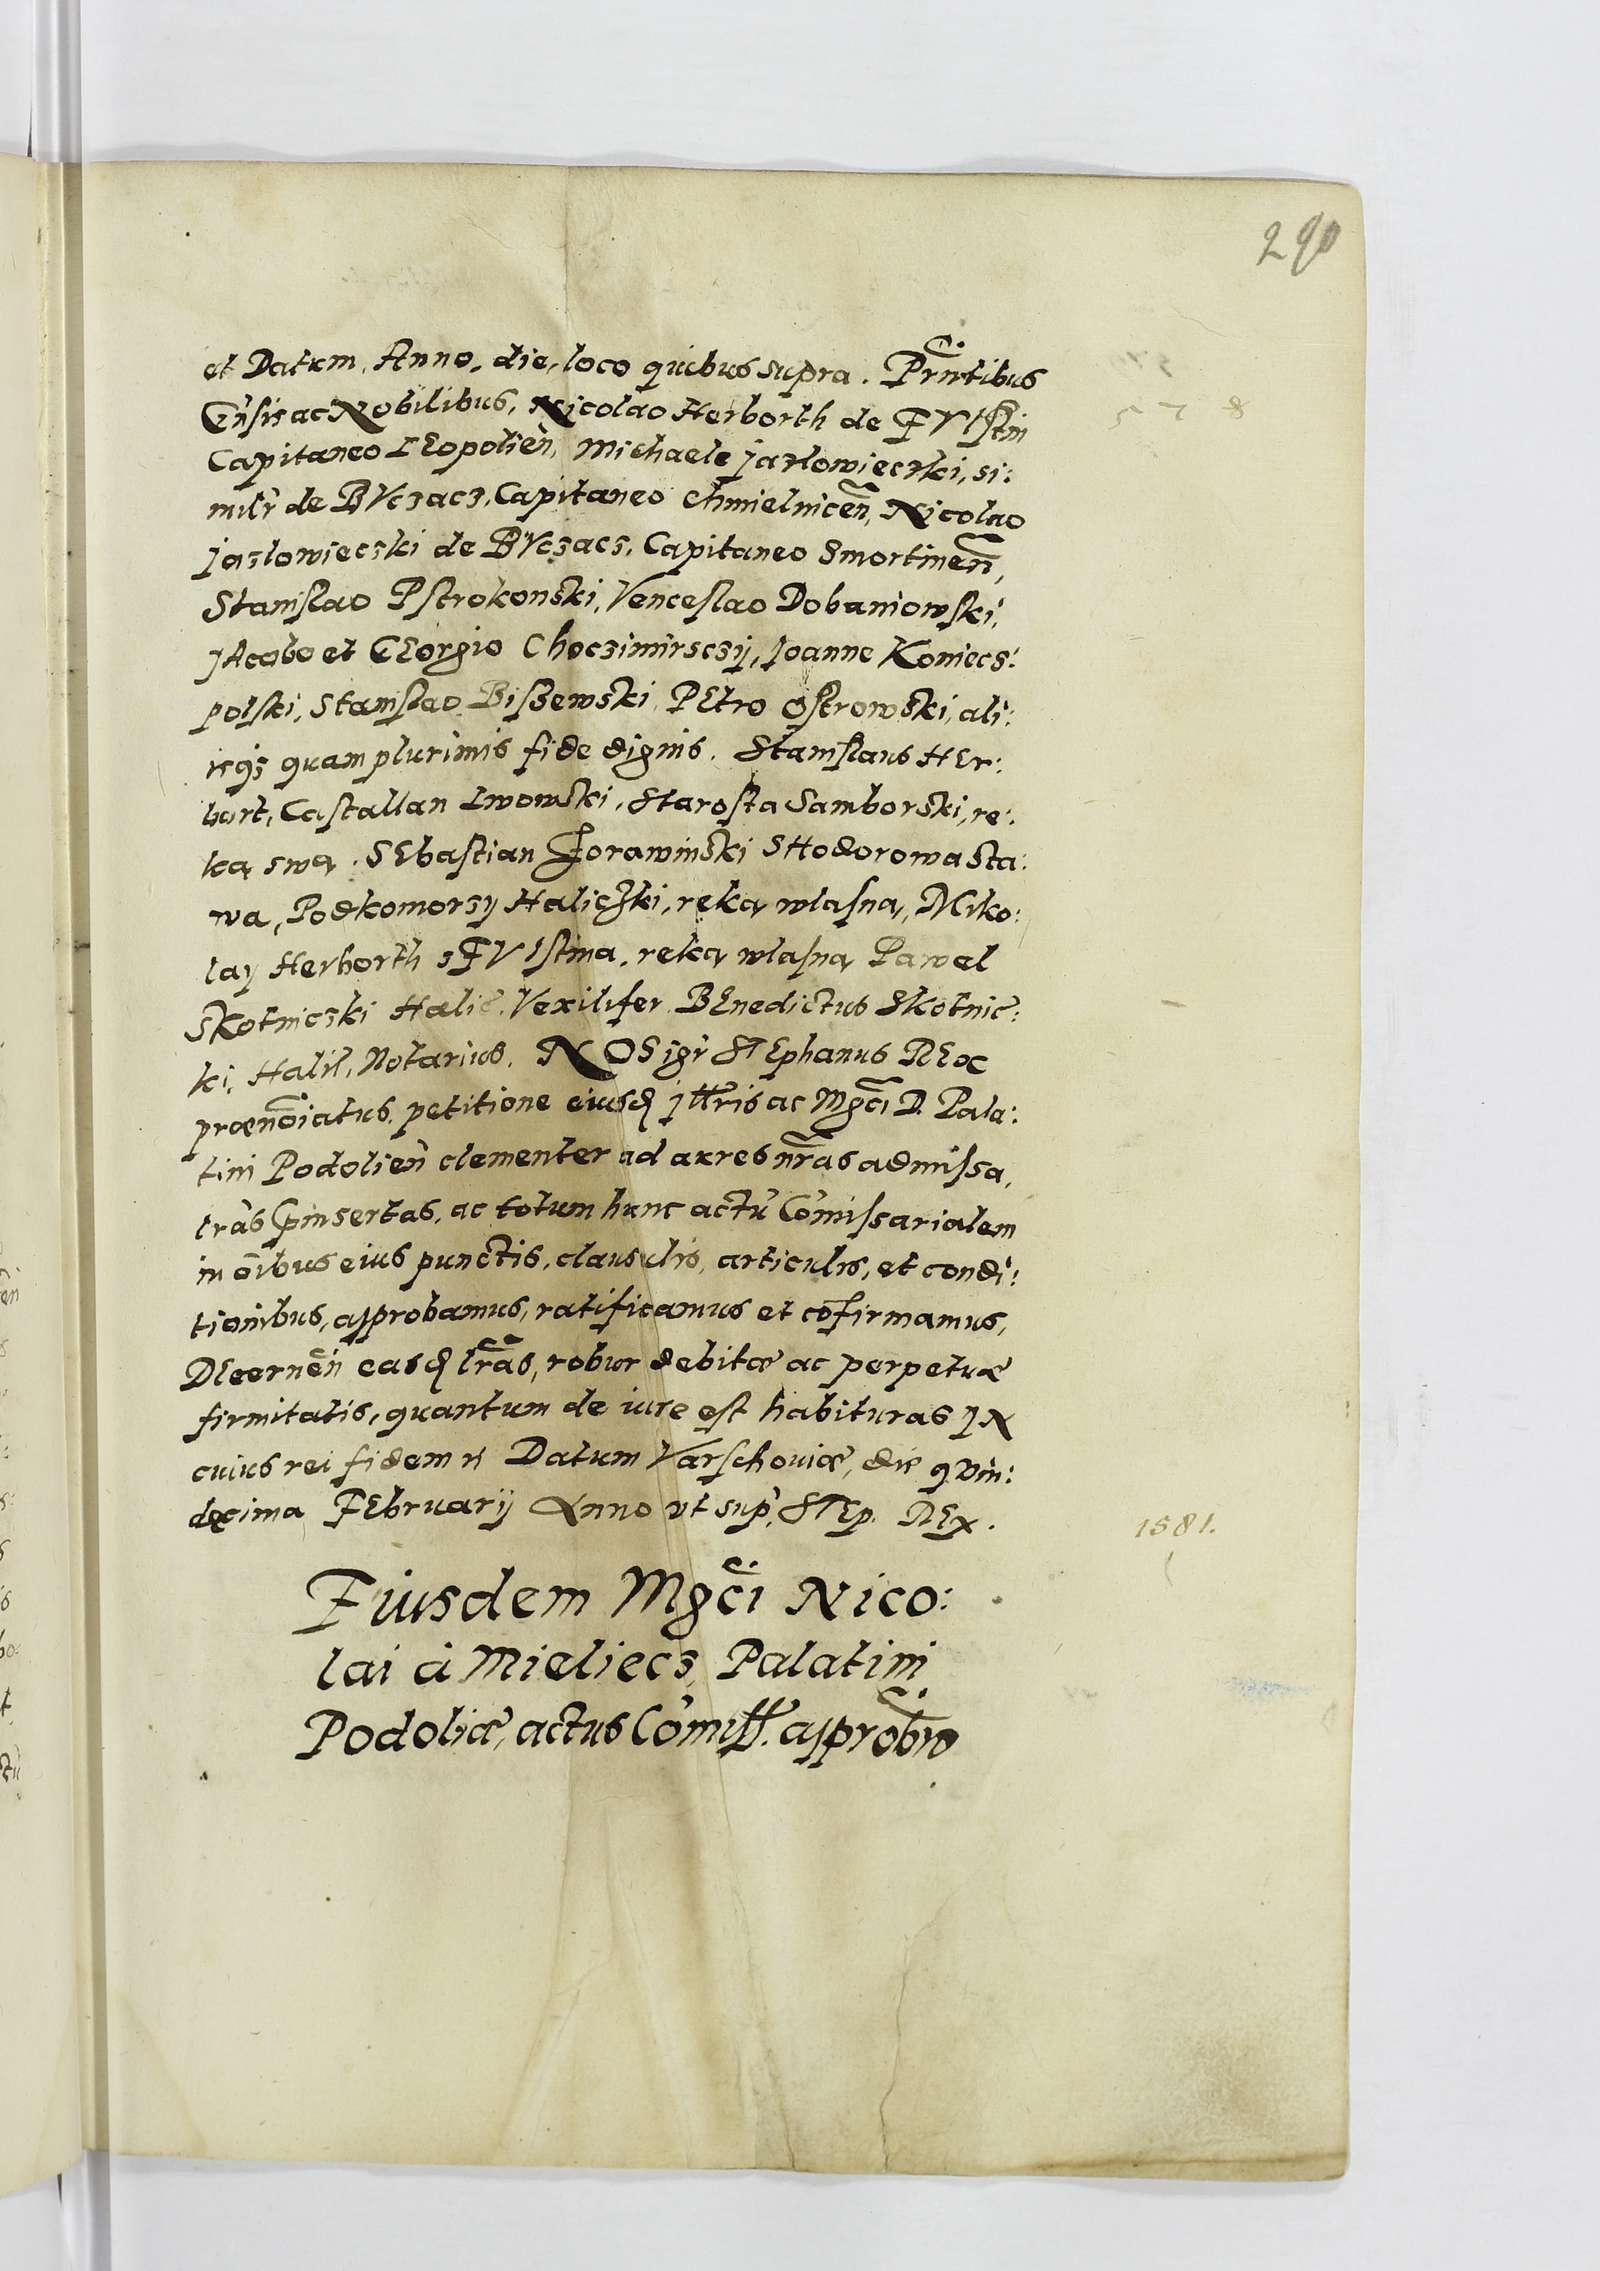 290
et Datum, Anno, die, loco quibus supra. Prñtibus
Gñsis ac Nobilibus, Nicolao Herborth de FVlſtin
Capitaneo LEopolień, Michaele Jazlowieczki, si:
milr de BVczacz, Capitaneo Chmielniceñ, Nicolao
Jazlowieczki de BVczacz, Capitaneo Smortineñ,
Stanislao Pſtrokonski, Venceslao Dobaniowſki,
JAcobo et GEorgio Choczimirsczij, Joanne Koniecz:
polſki, Stanislao Biſzewski, PEtro Oſtrowſki, ali:
isqȝ quam plurimis fide dignis. Stanislaus HEr:
burt, Caſtallan Lwowſki, Staroſta Samborſki, re:
ką swą. SEbaſtian Zorawinſki SHodorowa Sta:
wa, Podkomorzy Haliczki, reką wlaſną, Miko:
lay Herborth z FVlſtina, reką wlaſną Pawel
Skotniczki Halić. Vexilifer BEnedictus Skotnic:
ki, Halić, Notarius. NOS igr STEphanus REx
prænoĩatus, petitione eiusdꝫ Jllrĩs ac Mgcĩ D. Pala:
tini Podolień clementer ad aures nrãs admissa,
lrãs Spinsertas, ac totum hunc actũ Cõmissarialem
in oĩbus eius punctis, clausulis, articulis, et condi:
tionibus, approbamus, ratificamus et cõfirmamus,
DEcerneñ easdꝫ lrãs, robur debitæ ac perpetuæ
firmitatis, quantum de iure eſt habituras JN
cuius rei fidem ꝛꝭ Datum Varſchoviæ, die qvin:
decima FEbruarij Anno vt sup̃, STEp. REx.
1581.
Eiusdem Mgcĩ Nico:
lai à Mieliecz, Palatini
Podoliæ, actus Cõmiss. approbõ